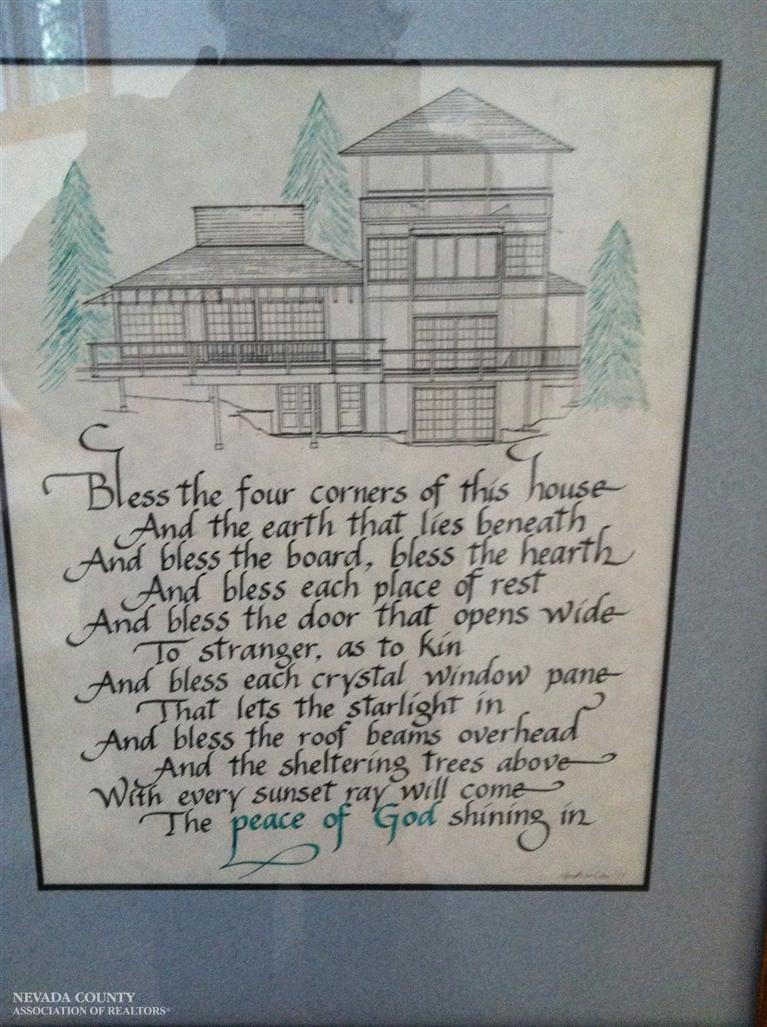 Bless the four corners of this house
And the earth that lies beneath
And bless the board, bless the hearth
And bless each place of rest
And bless the door that opens wide
To stranger, as to kin
And bless each crystal window pane
That lets the starlight in
And bless the roof beams overhead
And the sheltering trees above
With every sunset ray will come
The peace of God shining in
NEVADA COUNTY
ASSOCIATION OF REALTORS®